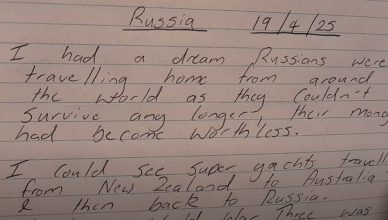 Russia 19/4/25
I had a dream Russians were
travelling home from around
the world as they couldn't
survive any longer, their
had become worthless.
I could see super yachts
from New Zealand to Australia
& then back to Russia.
War Three was